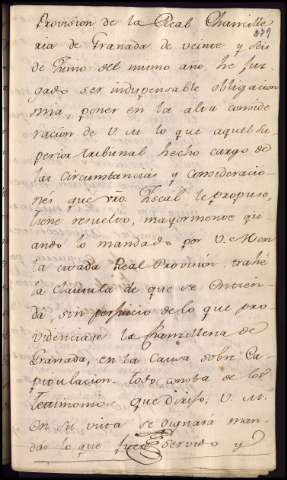 Provision de la Real Chancille
879
ria de Granada de veinte y seis
de Junio del mismo año, he juz
gado ser indispensable obligacion
mia, poner en la alta conside
racion de V. M. lo que aquel Su
perior tribunal hecho cargo de
las circunstancias y consideracio
nes que vro. Fiscal le propuso,
tiene resuelto, mayormente qu
ando lo mandado por V. M. en
la citada Real Provision, trahe
la clausula de que se entien
da sin perjuicio de lo que pro
videnciase la Chanzilleria de
Granada, en la Causa sobre Ca
pitulacion. todo consta de los
testimonios que dirijo; V. M.
en su vista se dignará man
dar lo que fuere servido y